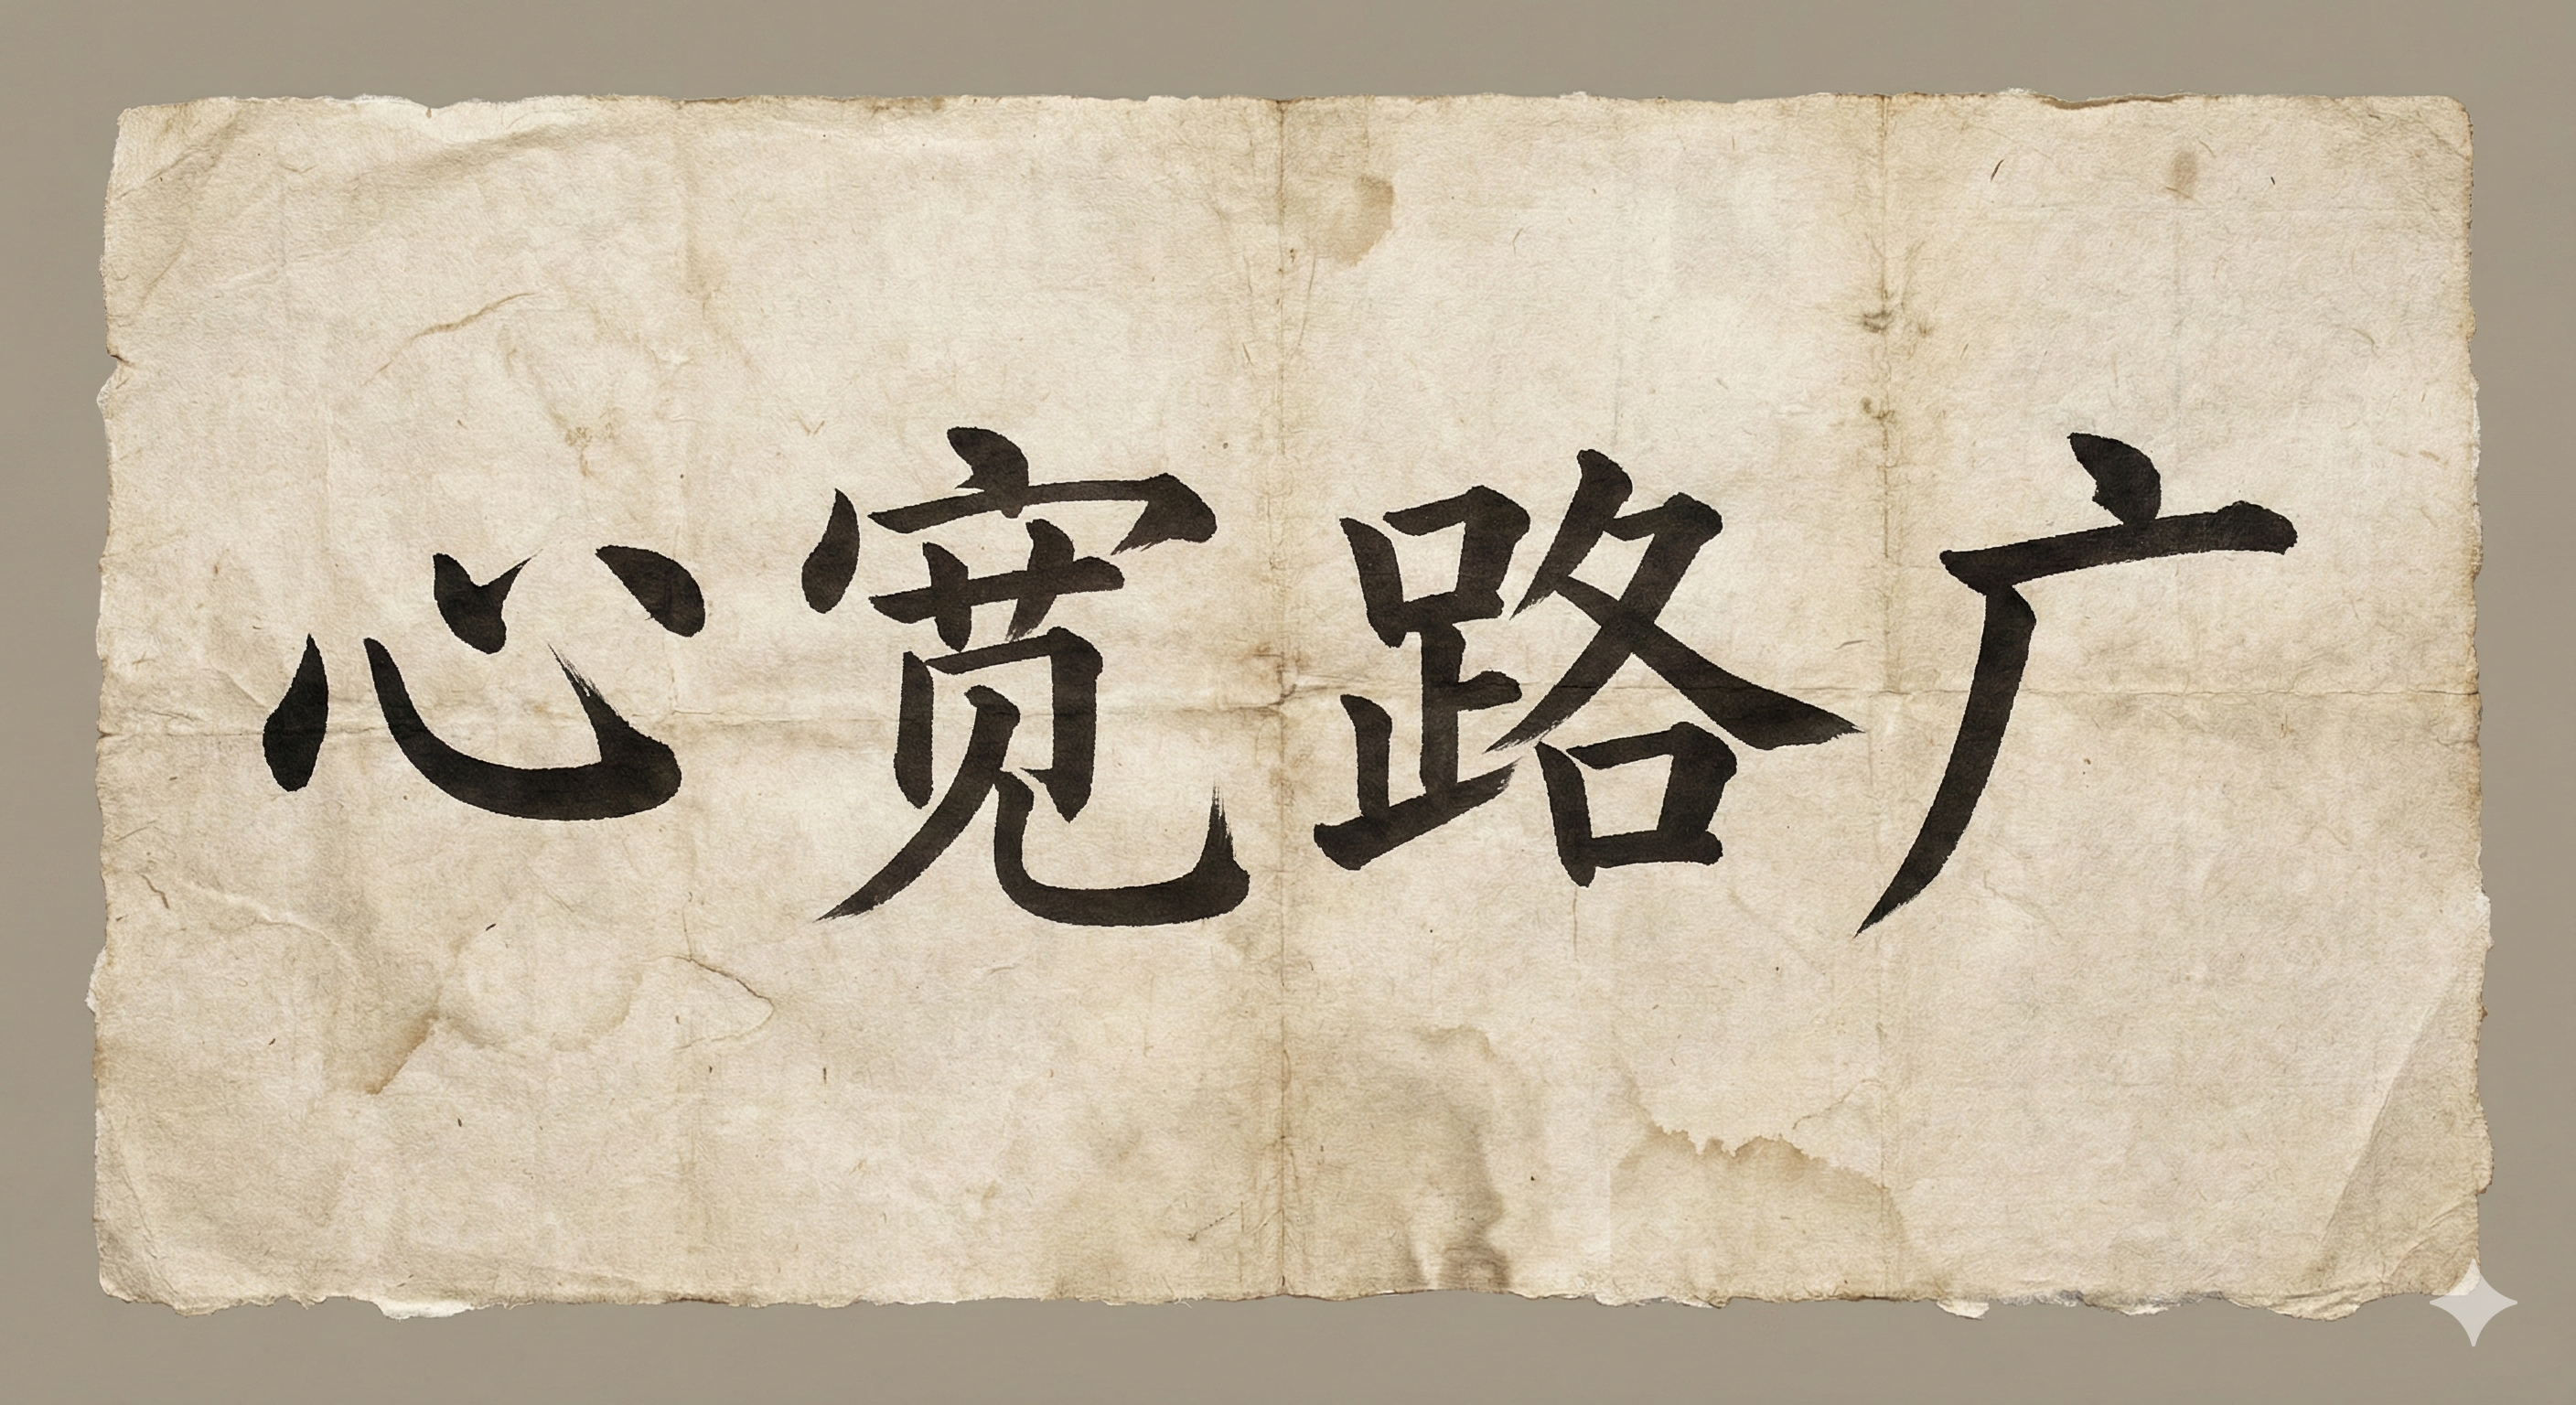 心宽路广